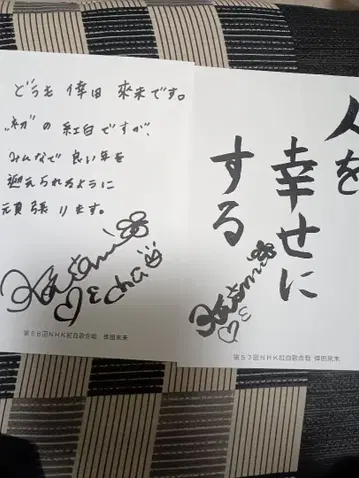 どうも 倖田 來未です。
"初"の 紅白ですが、
みんなで 良い年を
迎えられるように
頑張ります。
第５６回ＮＨＫ紅白歌合戦 倖田來未
人を
幸せに
する
第５７回ＮＨＫ紅白歌合戦 倖田來未